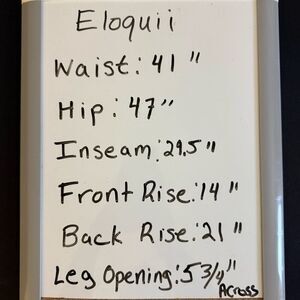 Eloquii
Waist: 41"
Hip: 47"
Inseam: 29.5"
Front Rise: 14"
Back Rise: 21"
Leg Opening: 5 3/4"
Across